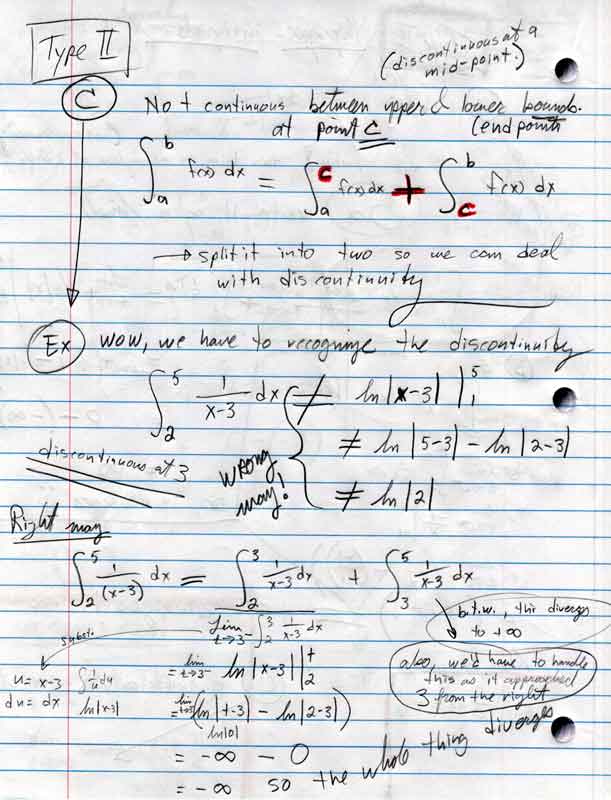 Type II
(discontinuous at a
mid-point.)
C Not continuous between upper & lower bounds.
at point c (endpoints
∫_a^b f(x) dx = ∫_a^c f(x) dx + ∫_c^b f(x) dx
→ split it into two so we can deal
with discontinuity
Ex wow, we have to recognize the discontinuity
∫_2^5 1/(x-3) dx ≠ ln|x-3| |_1^5
≠ ln|5-3| - ln|2-3|
discontinuous at 3
wrong
way!
≠ ln|2|
Right way
∫_2^5 1/(x-3) dx = ∫_2^3 1/(x-3) dx + ∫_3^5 1/(x-3) dx
Lim t→3⁻ ∫_2^3 1/(x-3) dx
b.t.w., this diverges
to +∞
subst.
also, we'd have to handle
this as it approached
3 from the right
u = x-3 ∫ 1/u du = lim t→3⁻ ln|x-3| |_2^t
du = dx ln|x-3| = lim t→3⁻ (ln|t-3| - ln|2-3|)
ln|0|
= -∞ - 0
= -∞ so the whole thing diverges